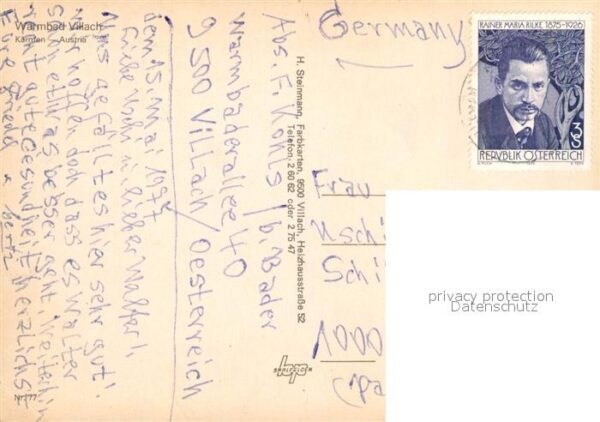 Warmbad Villach
Kärnten - Austria
Abs. F. Kohls / b. Bader
Warmbaderallee 40
9500 Villach/Oesterreich
den 15. Mai 1977
Liebe Uschi u. lieber Walter!
Uns gefällt es hier sehr gut!
Wir hoffen doch dass es Walter
etwas besser geht, weiterhin
gute Gesundheit herzlichst
Eure Friedel u.
Nr. 77
H. Steinmann, Farbkarten, 9500 Villach, Heizhausstraße 52
Telefon: 2 60 62 oder 2 75 47
Germany
RAINER MARIA RILKE 1875-1926
3S
REPUBLIK ÖSTERREICH
Frau
Uschi
Schi
1000
privacy protection
Datenschutz